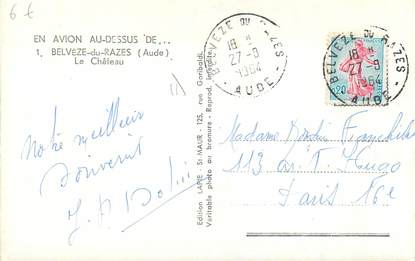 6 €
EN AVION AU-DESSUS DE...
1. BELVÈZE-du-RAZES (Aude)
Le Château
BELVÈZE DU RAZES
18 H
27-9
1964
AUDE
BELVÈZE DU RAZES
18 H
27-9
1964
AUDE
0,20
Edition LAPIE - St MAUR - 125, rue Garibaldi.
Véritable photo au bromure - Reprod. interdite.
Notre meilleur
souvenir
Madame
113 av. V. Hugo
Paris 16e